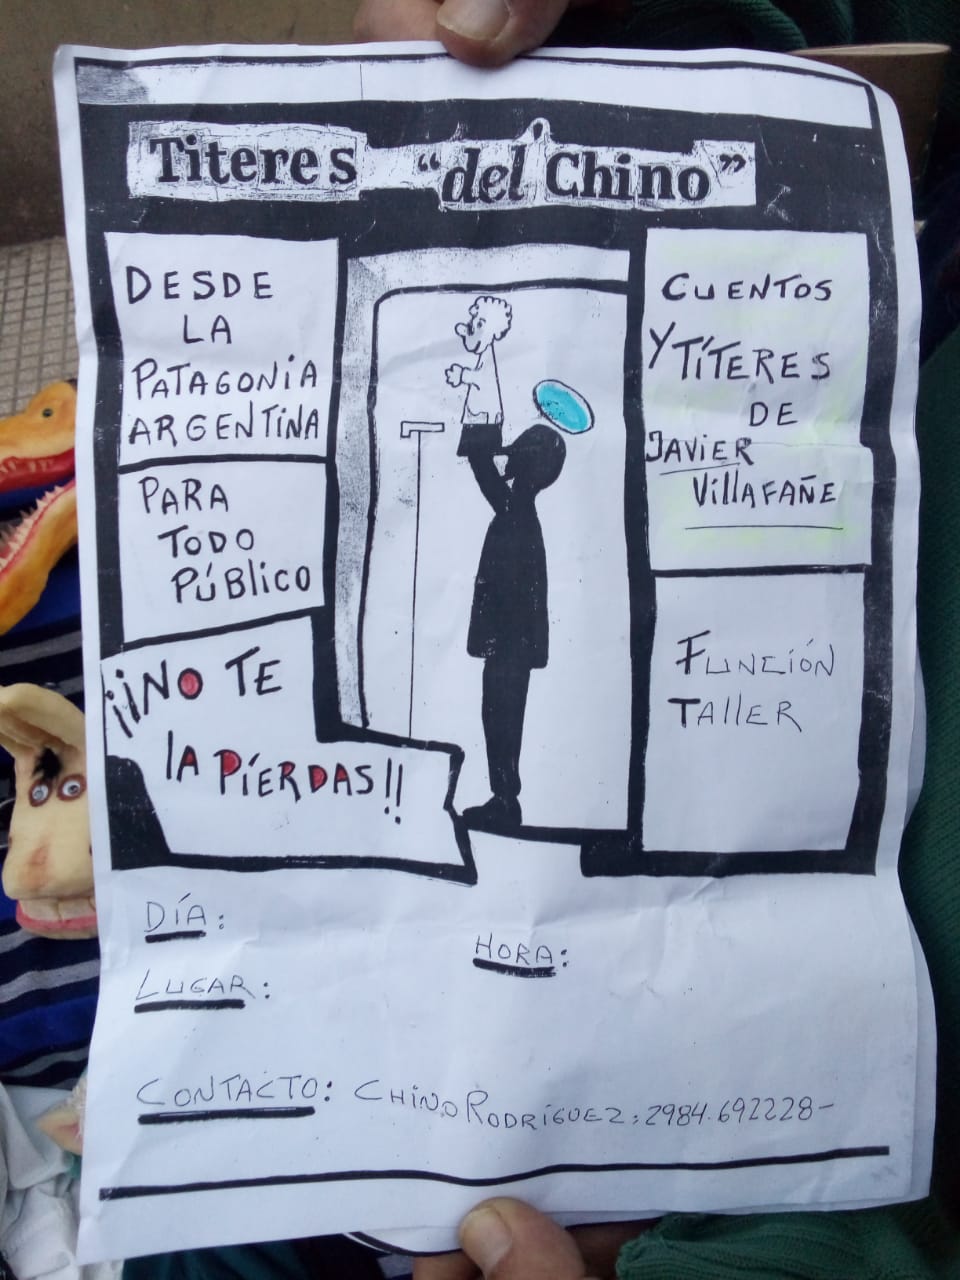 Titeres "del Chino"
DESDE
LA
PATAGONIA
ARGENTINA
PARA
TODO
PÚBLICO
¡¡NO TE
LA PÍERDAS!!
CUENTOS
Y TÍTERES
DE
JAVIER
VIllAFAÑE
FUNCIÓN
TAllER
DÍA:
HORA:
LUGAR:
CONTACTO: CHINO RODRÍGUEZ: 2984.692228-